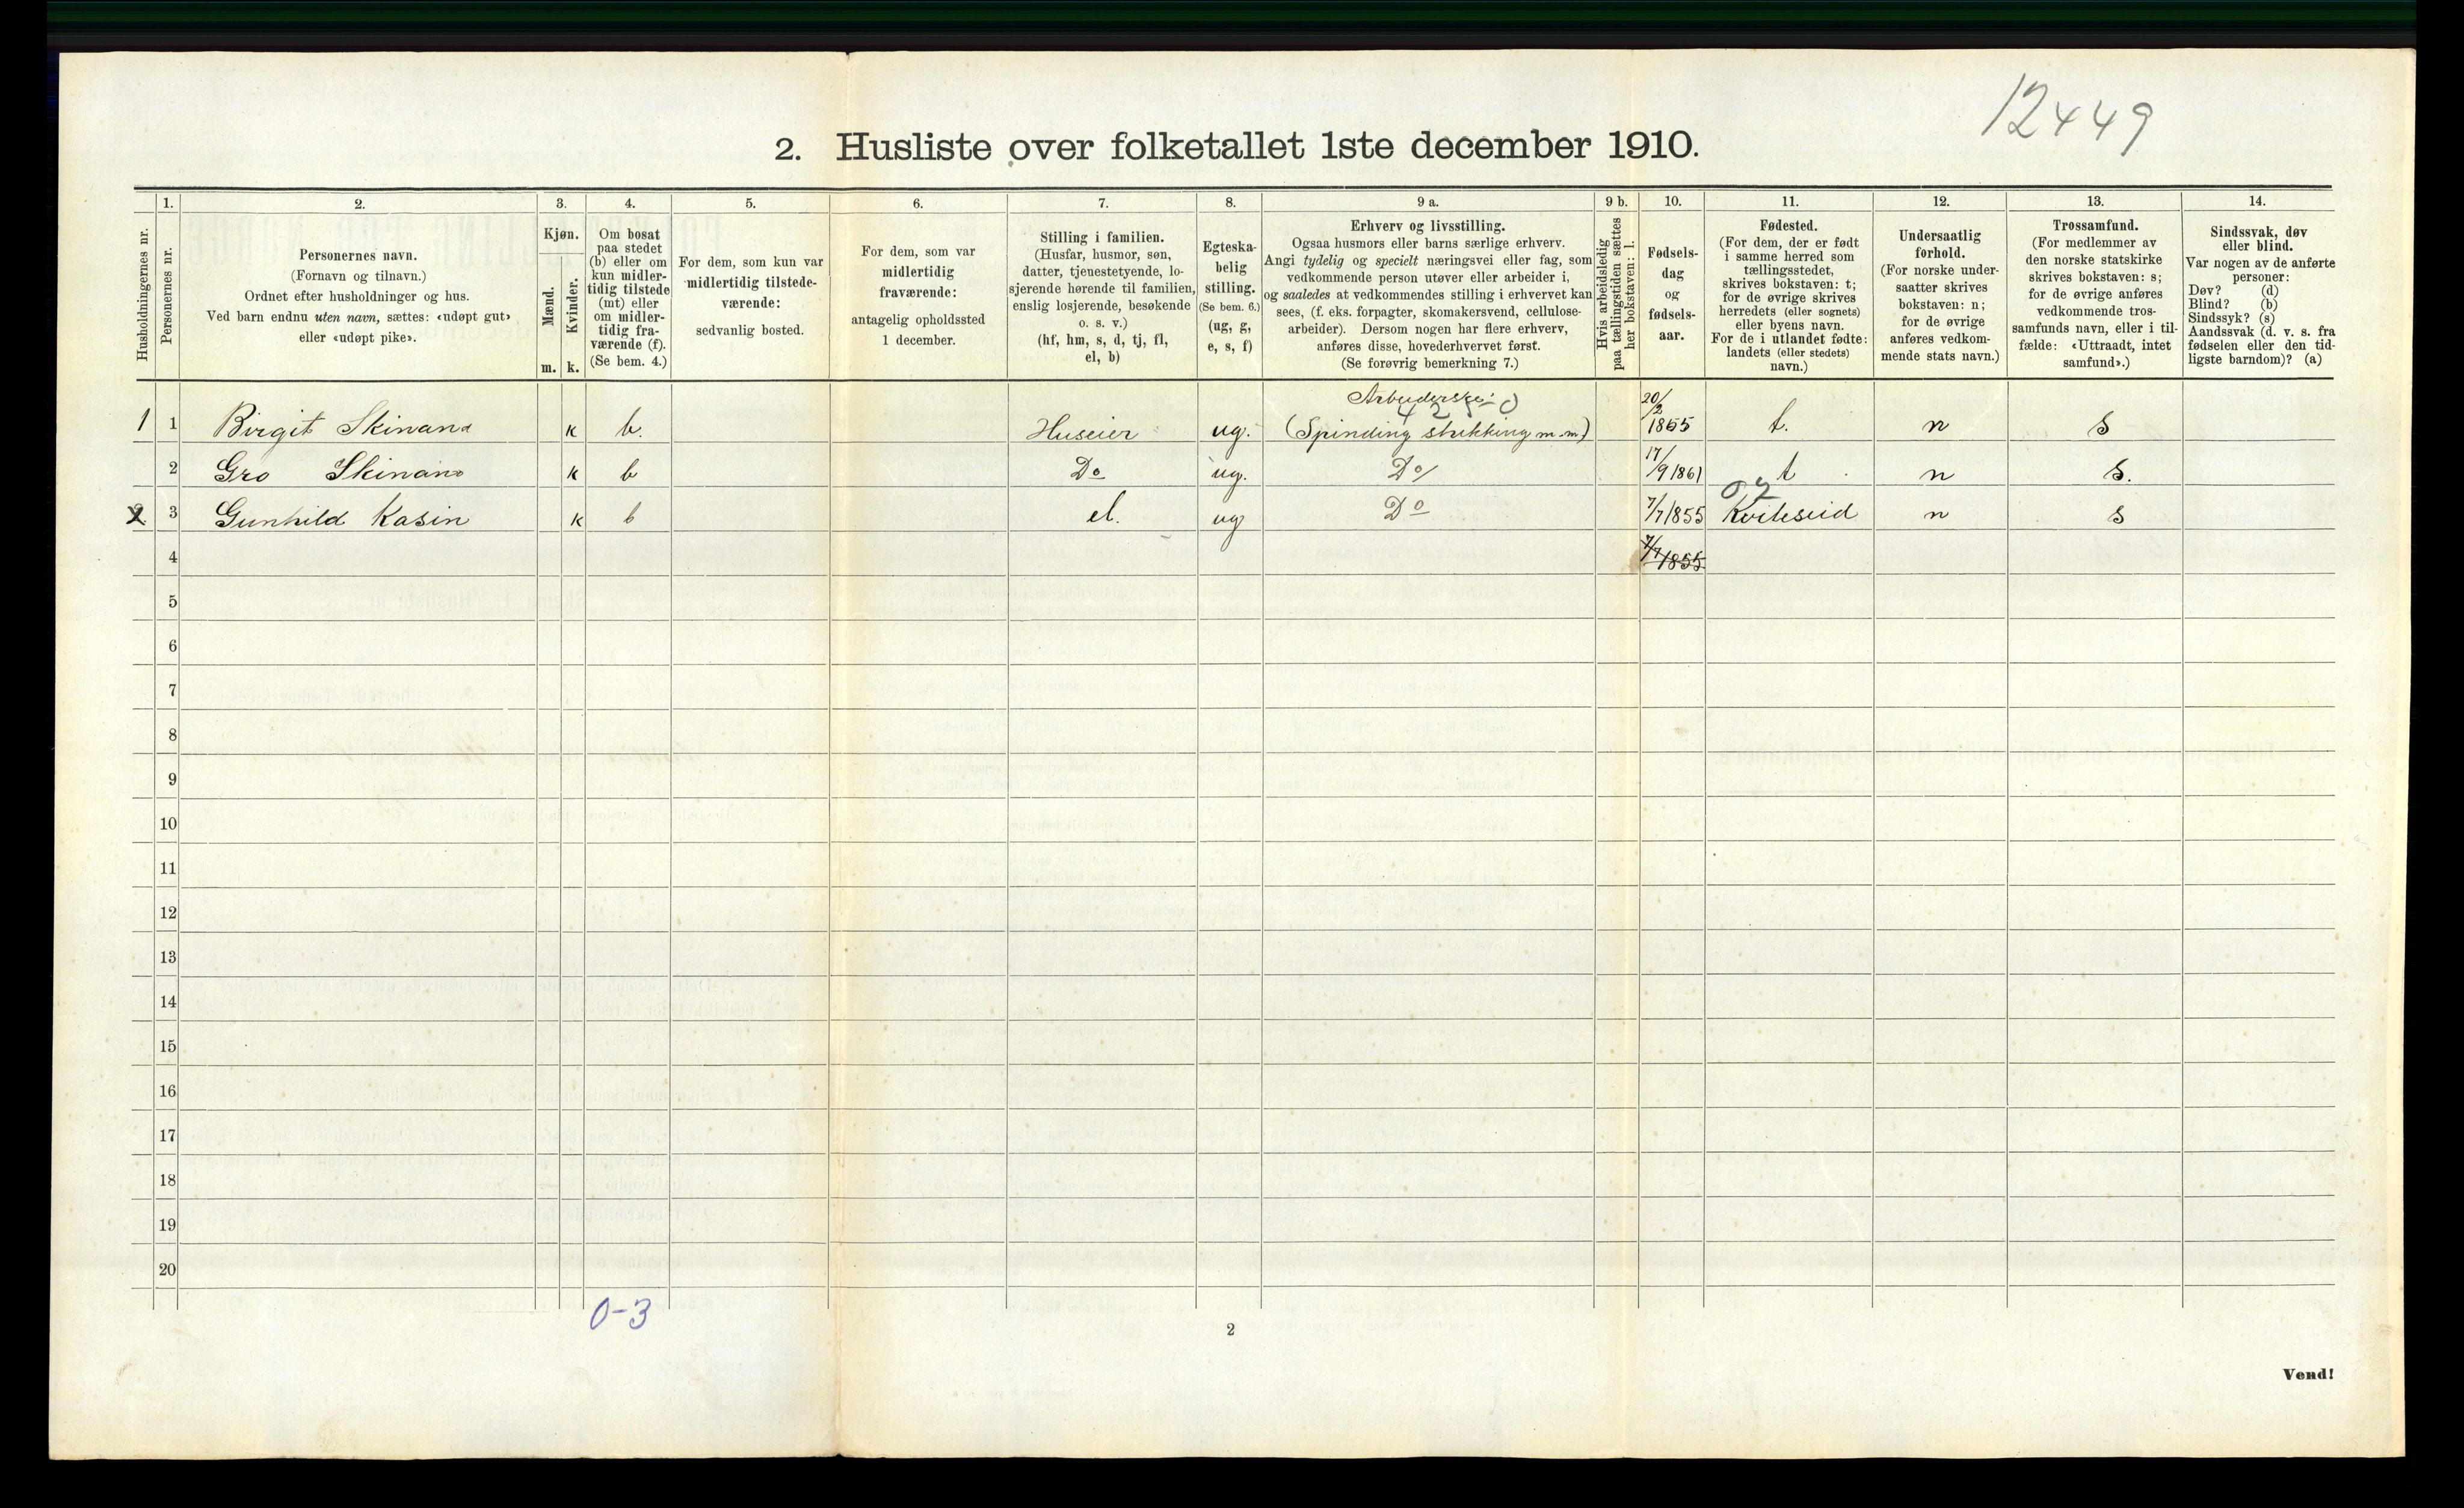 12449
2. Husliste over folketallet 1ste december 1910.
Husholdningernes nr.
1.
Personernes nr.
2.
Personernes navn.
(Fornavn og tilnavn.)
Ordnet efter husholdninger og hus.
Ved barn endnu uten navn, sættes: «udøpt gut»
eller «udøpt pike».
3.
Kjøn.
Mænd.
Kvinder.
m. k.
4.
Om bosat
paa stedet
(b) eller om
kun midler-
tidig tilstede
(mt) eller
om midler-
tidig fra-
værende (f).
(Se bem. 4.)
5.
For dem, som kun var
midlertidig tilstede-
værende:
sedvanlig bosted.
6.
For dem, som var
midlertidig
fraværende:
antagelig opholdssted
1 december.
7.
Stilling i familien.
(Husfar, husmor, søn,
datter, tjenestetyende, lo-
sjerende hørende til familien,
enslig losjerende, besøkende
o. s. v.)
(hf, hm, s, d, tj, fl,
el, b)
8.
Egteska-
belig
stilling.
(Se bem. 6.)
(ug, g,
e, s, f)
9 a.
Erhverv og livsstilling.
Ogsaa husmors eller barns særlige erhverv.
Angi tydelig og specielt næringsvei eller fag, som
vedkommende person utøver eller arbeider i,
og saaledes at vedkommendes stilling i erhvervet kan
sees, (f. eks. forpagter, skomakersvend, cellulose-
arbeider). Dersom nogen har flere erhverv,
anføres disse, hovederhvervet først.
(Se forøvrig bemerkning 7.)
9 b.
Hvis arbeidsledig
paa tællingstiden sættes
her bokstaven: l.
10.
Fødsels-
dag
og
fødsels-
aar.
11.
Fødested.
(For dem, der er født
i samme herred som
tællingsstedet,
skrives bokstaven: t;
for de øvrige skrives
herredets (eller sognets)
eller byens navn.
For de i utlandet fødte:
landets (eller stedets)
navn.)
12.
Undersaatlig
forhold.
(For norske under-
saatter skrives
bokstaven: n;
for de øvrige
anføres vedkom-
mende stats navn.)
13.
Trossamfund.
(For medlemmer av
den norske statskirke
skrives bokstaven: s;
for de øvrige anføres
vedkommende tros-
samfunds navn, eller i til-
fælde: «Uttraadt, intet
samfund».)
14.
Sindssvak, døv
eller blind.
Var nogen av de anførte
personer:
Døv? (d)
Blind? (b)
Sindssyk? (s)
Aandssvak (d. v. s. fra
fødselen eller den tid-
ligste barndom)? (a)
1 1 Birgit Skinand k b. Huseier ug. Arbeiderske: (Spinding strikking m.m) 20/2 1855 t. n s
2 Gro Skinand k b Do ug. Do/ 17/9 1861 t n s.
2. 3 Gunhild Kasin k b el. ug Do 7/7 1855 Kviteseid n s
4 7/7 1855
5
6
7
8
9
10
11
12
13
14
15
16
17
18
19
20
0-3
2
Vend!